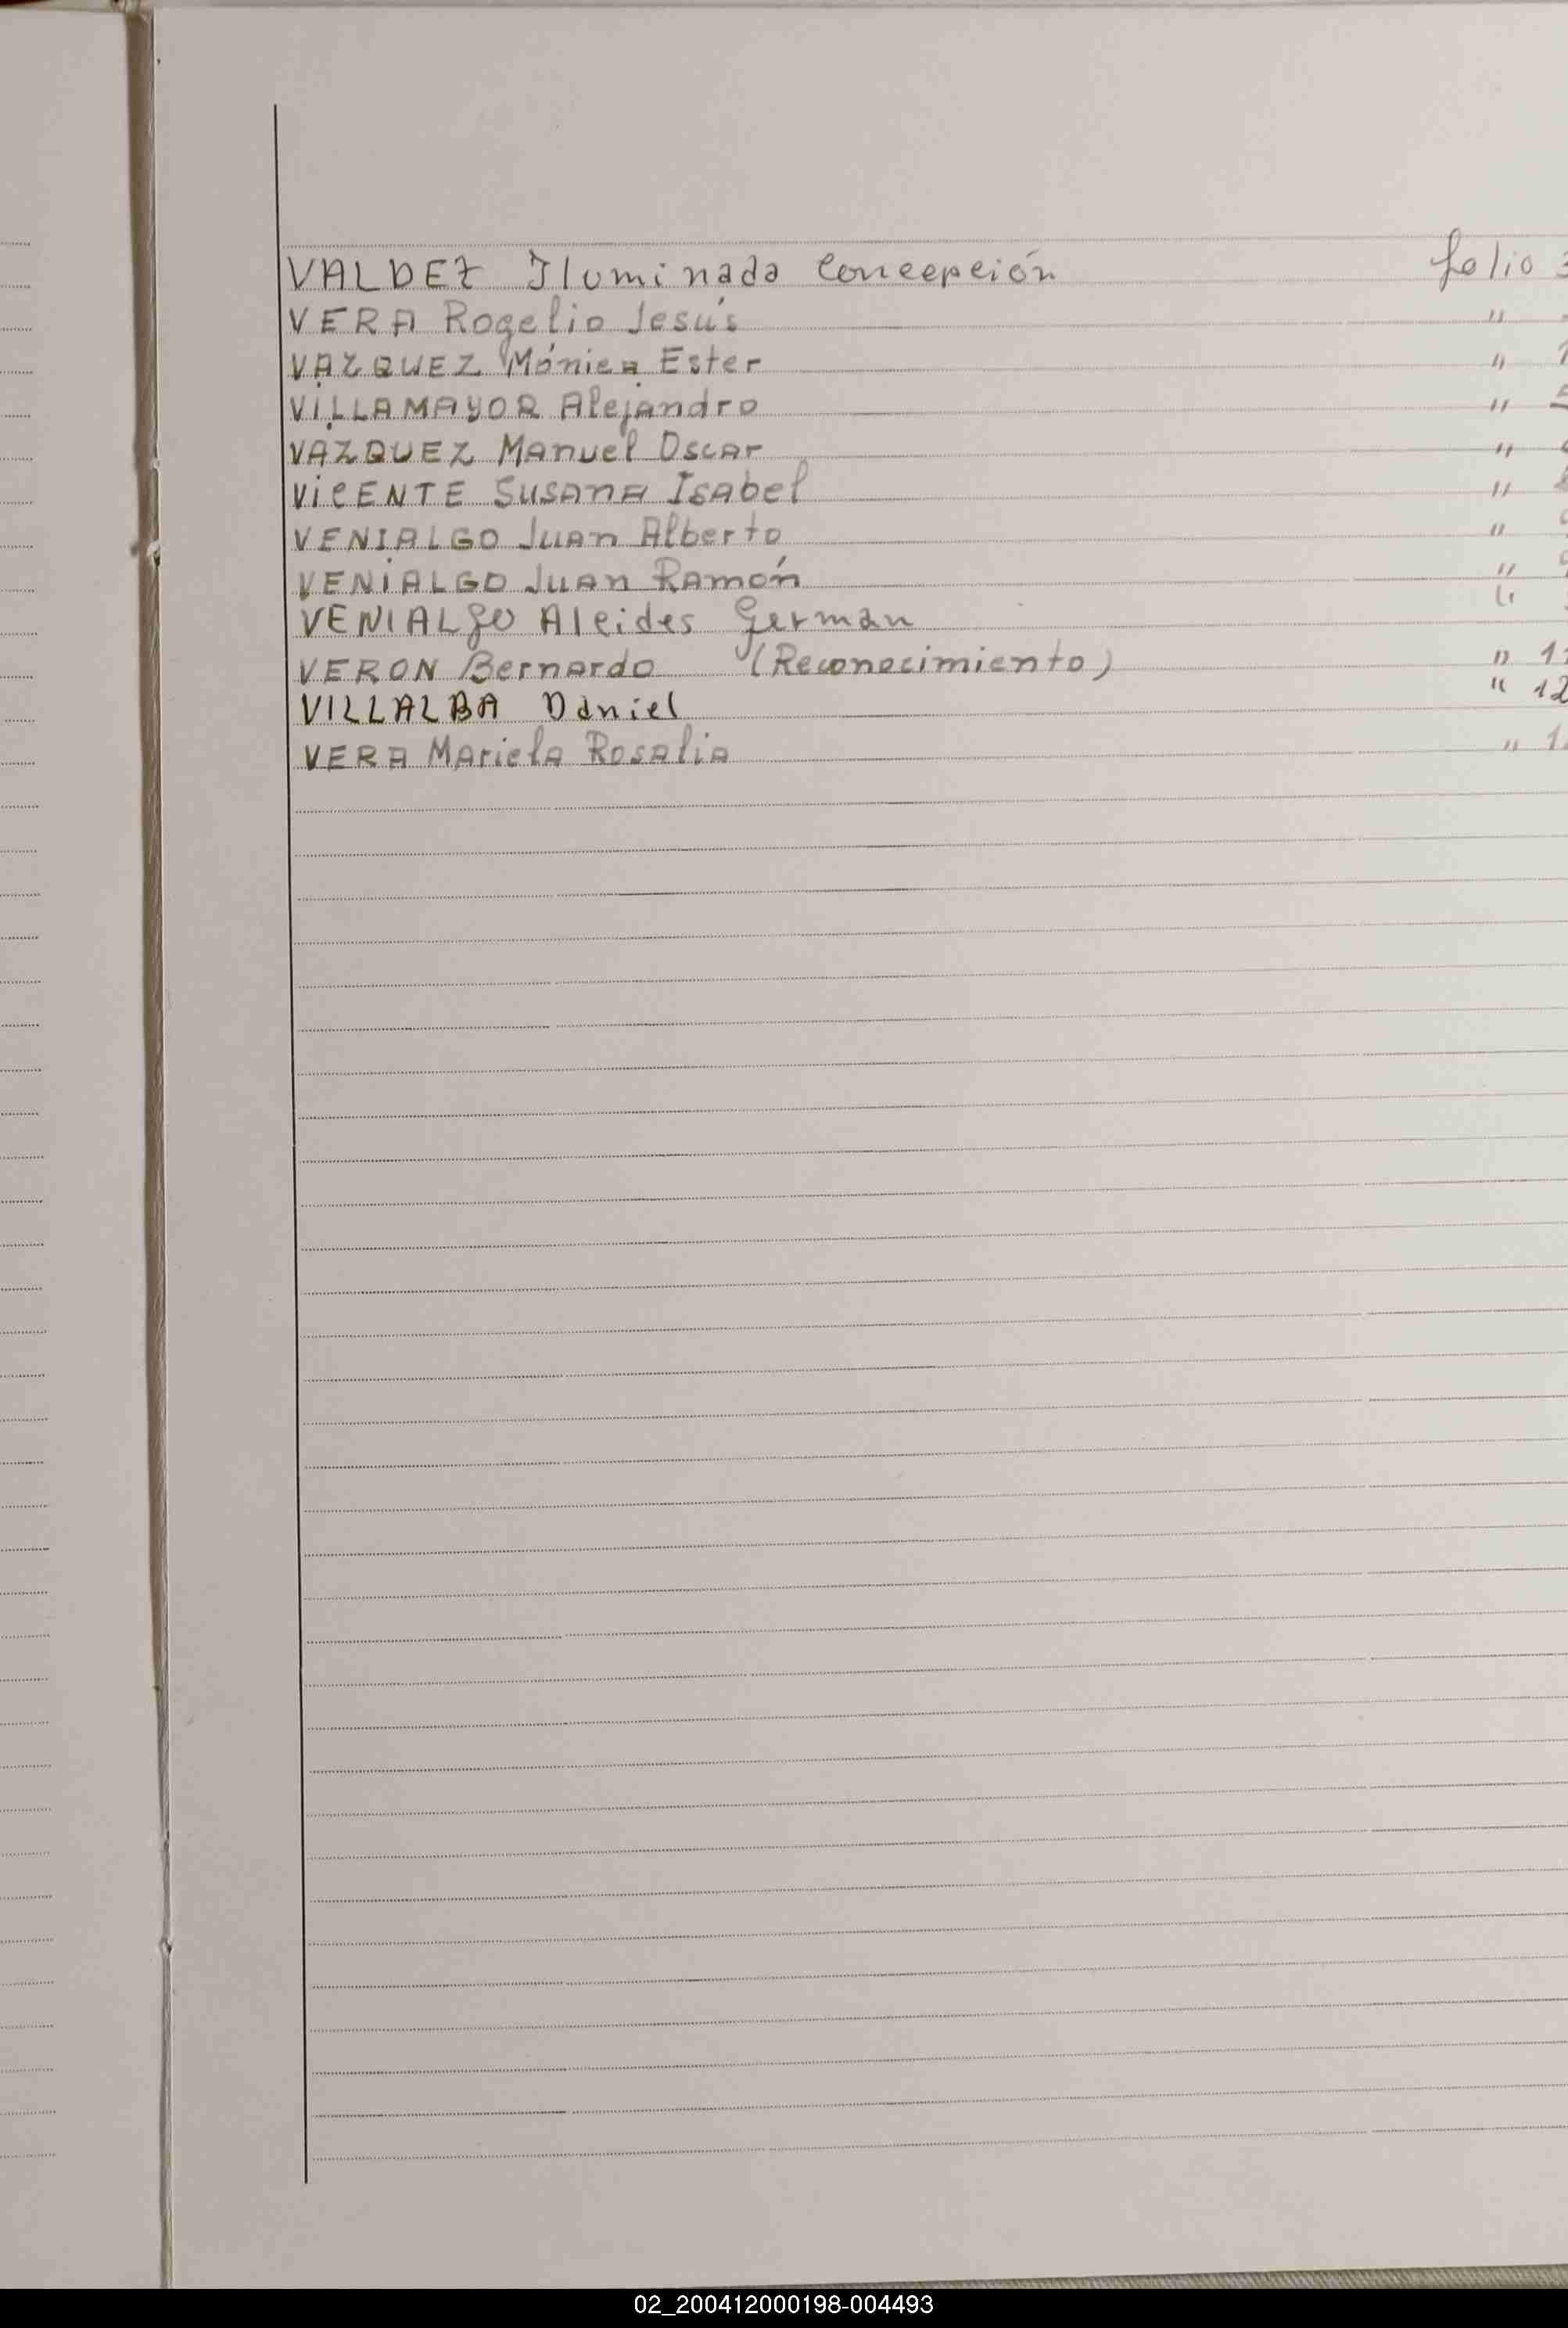 VALDEZ Iluminada Concepción folio
VERA Rogelio Jesús "
VAZQUEZ Mónica Ester "
VILLAMAYOR Alejandro " 5
VAZQUEZ Manuel Oscar "
VICENTE Susana Isabel "
VENIALGO Juan Alberto "
VENIALGO Juan Ramón "
VENIALGO Alcides German "
VERON Bernardo (Reconocimiento) " 1
VILLALBA Daniel " 12
VERA Mariela Rosalia " 1
02_200412000198-004493